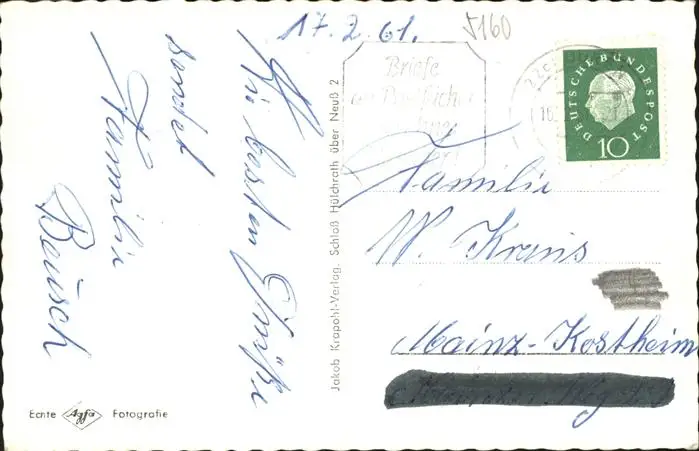 17.2.61.
5160
Die besten Grüße
sendet
Familie
Bausch
Briefe
an Postfächer
DEUTSCHE BUNDESPOST
10
Familie
W. Kraus
Mainz-Kostheim
Jakob Krapohl-Verlag, Schloß Hülchrath über Neuß 2
Echte Agfa Fotografie